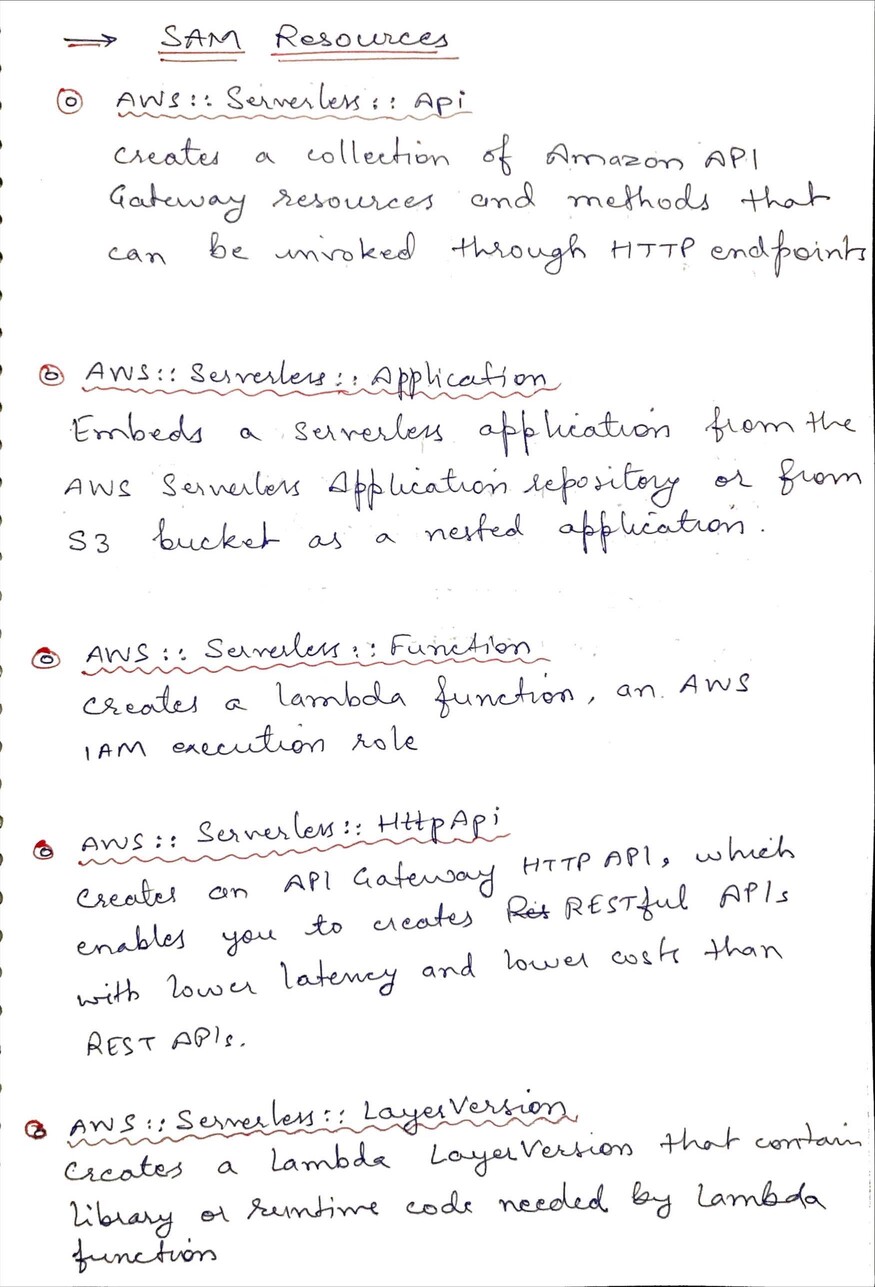 → SAM Resources
AWS:: Serverless:: Api
creates a collection of Amazon API
Gateway resources and methods that
can be invoked through HTTP endpoints
AWS:: Serverless:: Application
Embeds a serverless application from the
AWS Serverless Application repository or from
S3 bucket as a nested application.
AWS:: Serverless:: Function
creates a lambda function, an AWS
IAM execution role
AWS:: Serverless:: HttpApi
creates an API Gateway HTTP API, which
enables you to creates Res RESTful APIs
with lower latency and lower costs than
REST APIs.
AWS:: Serverless:: LayerVersion
creates a Lambda LayerVersion that contain
library or runtime code needed by Lambda
function